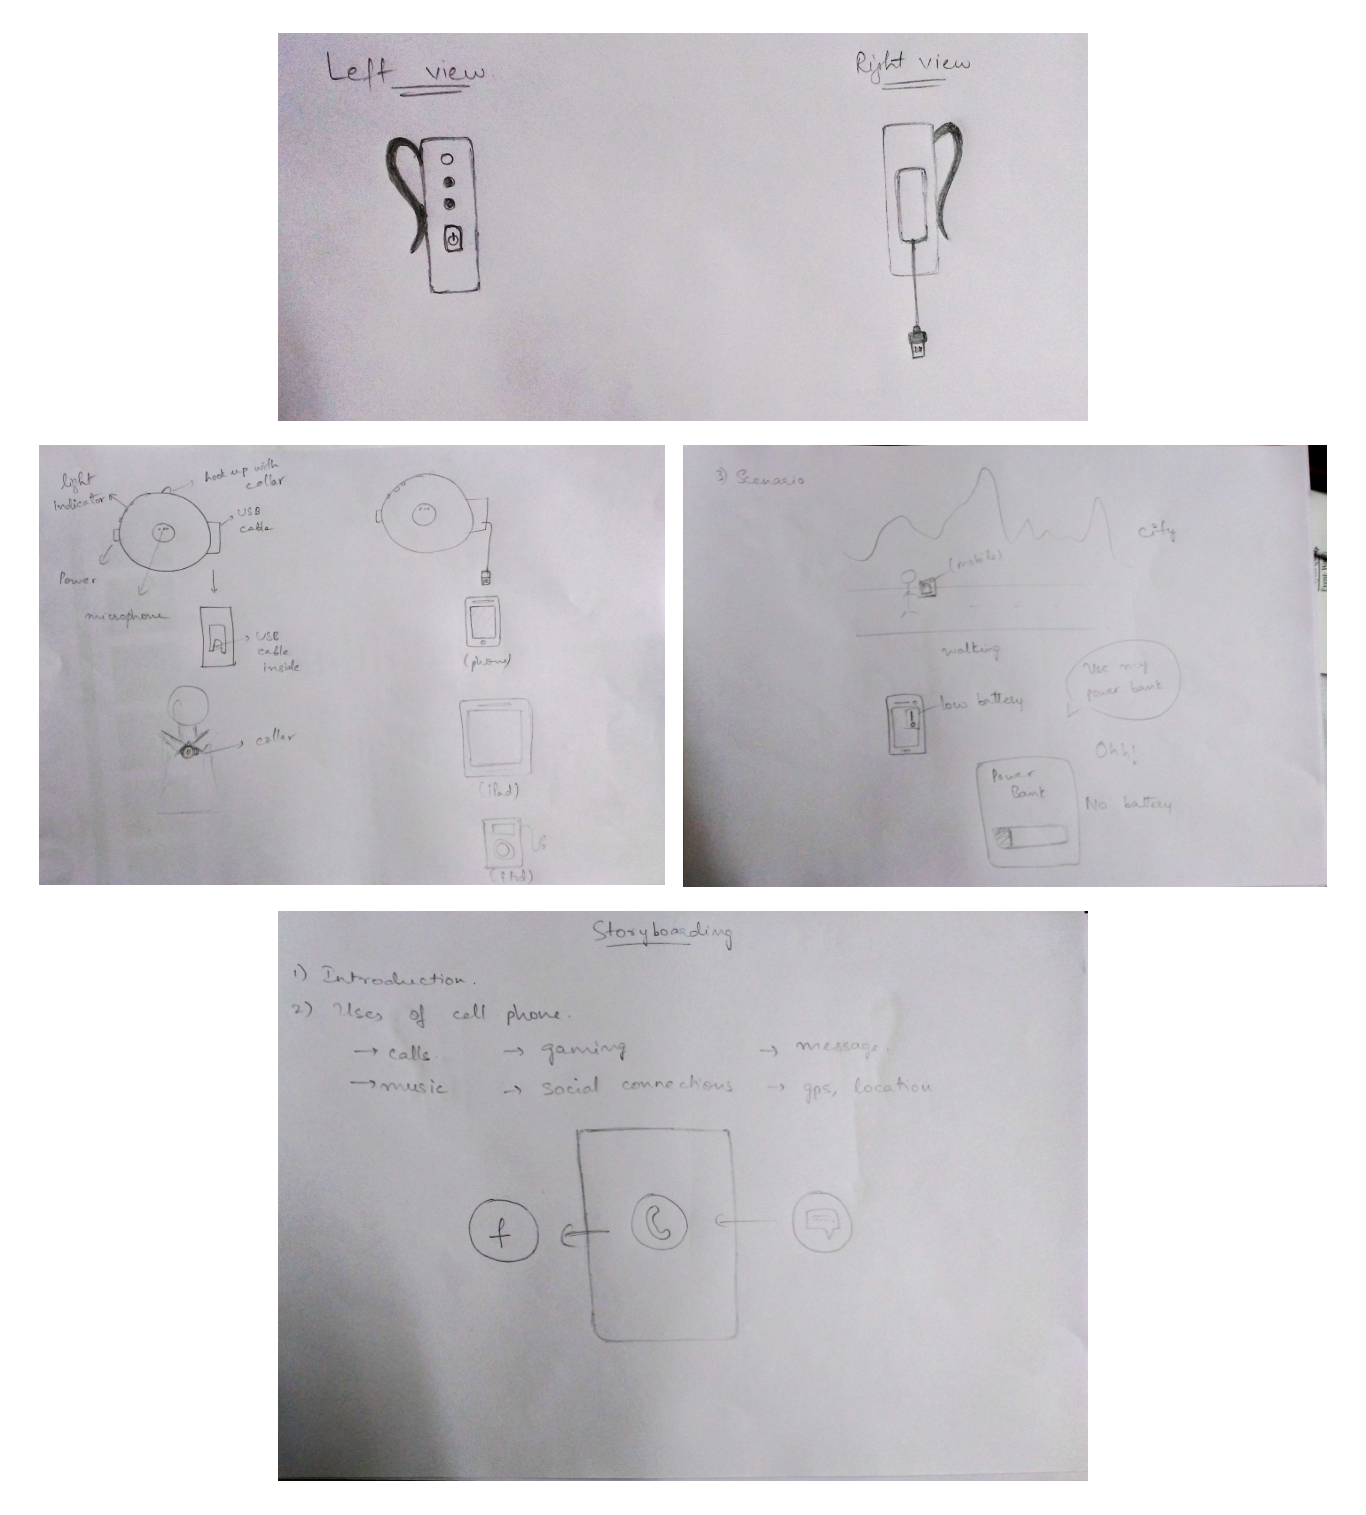 Left view
Right view
light
indicator
hook up with
collar
USB
cable
Power
microphone
USB
cable
inside
collar
(phone)
(iPad)
(iPod)
3) Scenario
city
(mobile)
walking
low battery
Use my
power bank
Ohh!
Power
Bank
No battery
Storyboarding
1) Introduction.
2) Uses of cell phone.
→ calls. → gaming → message.
→ music → social connections → gps, location
f